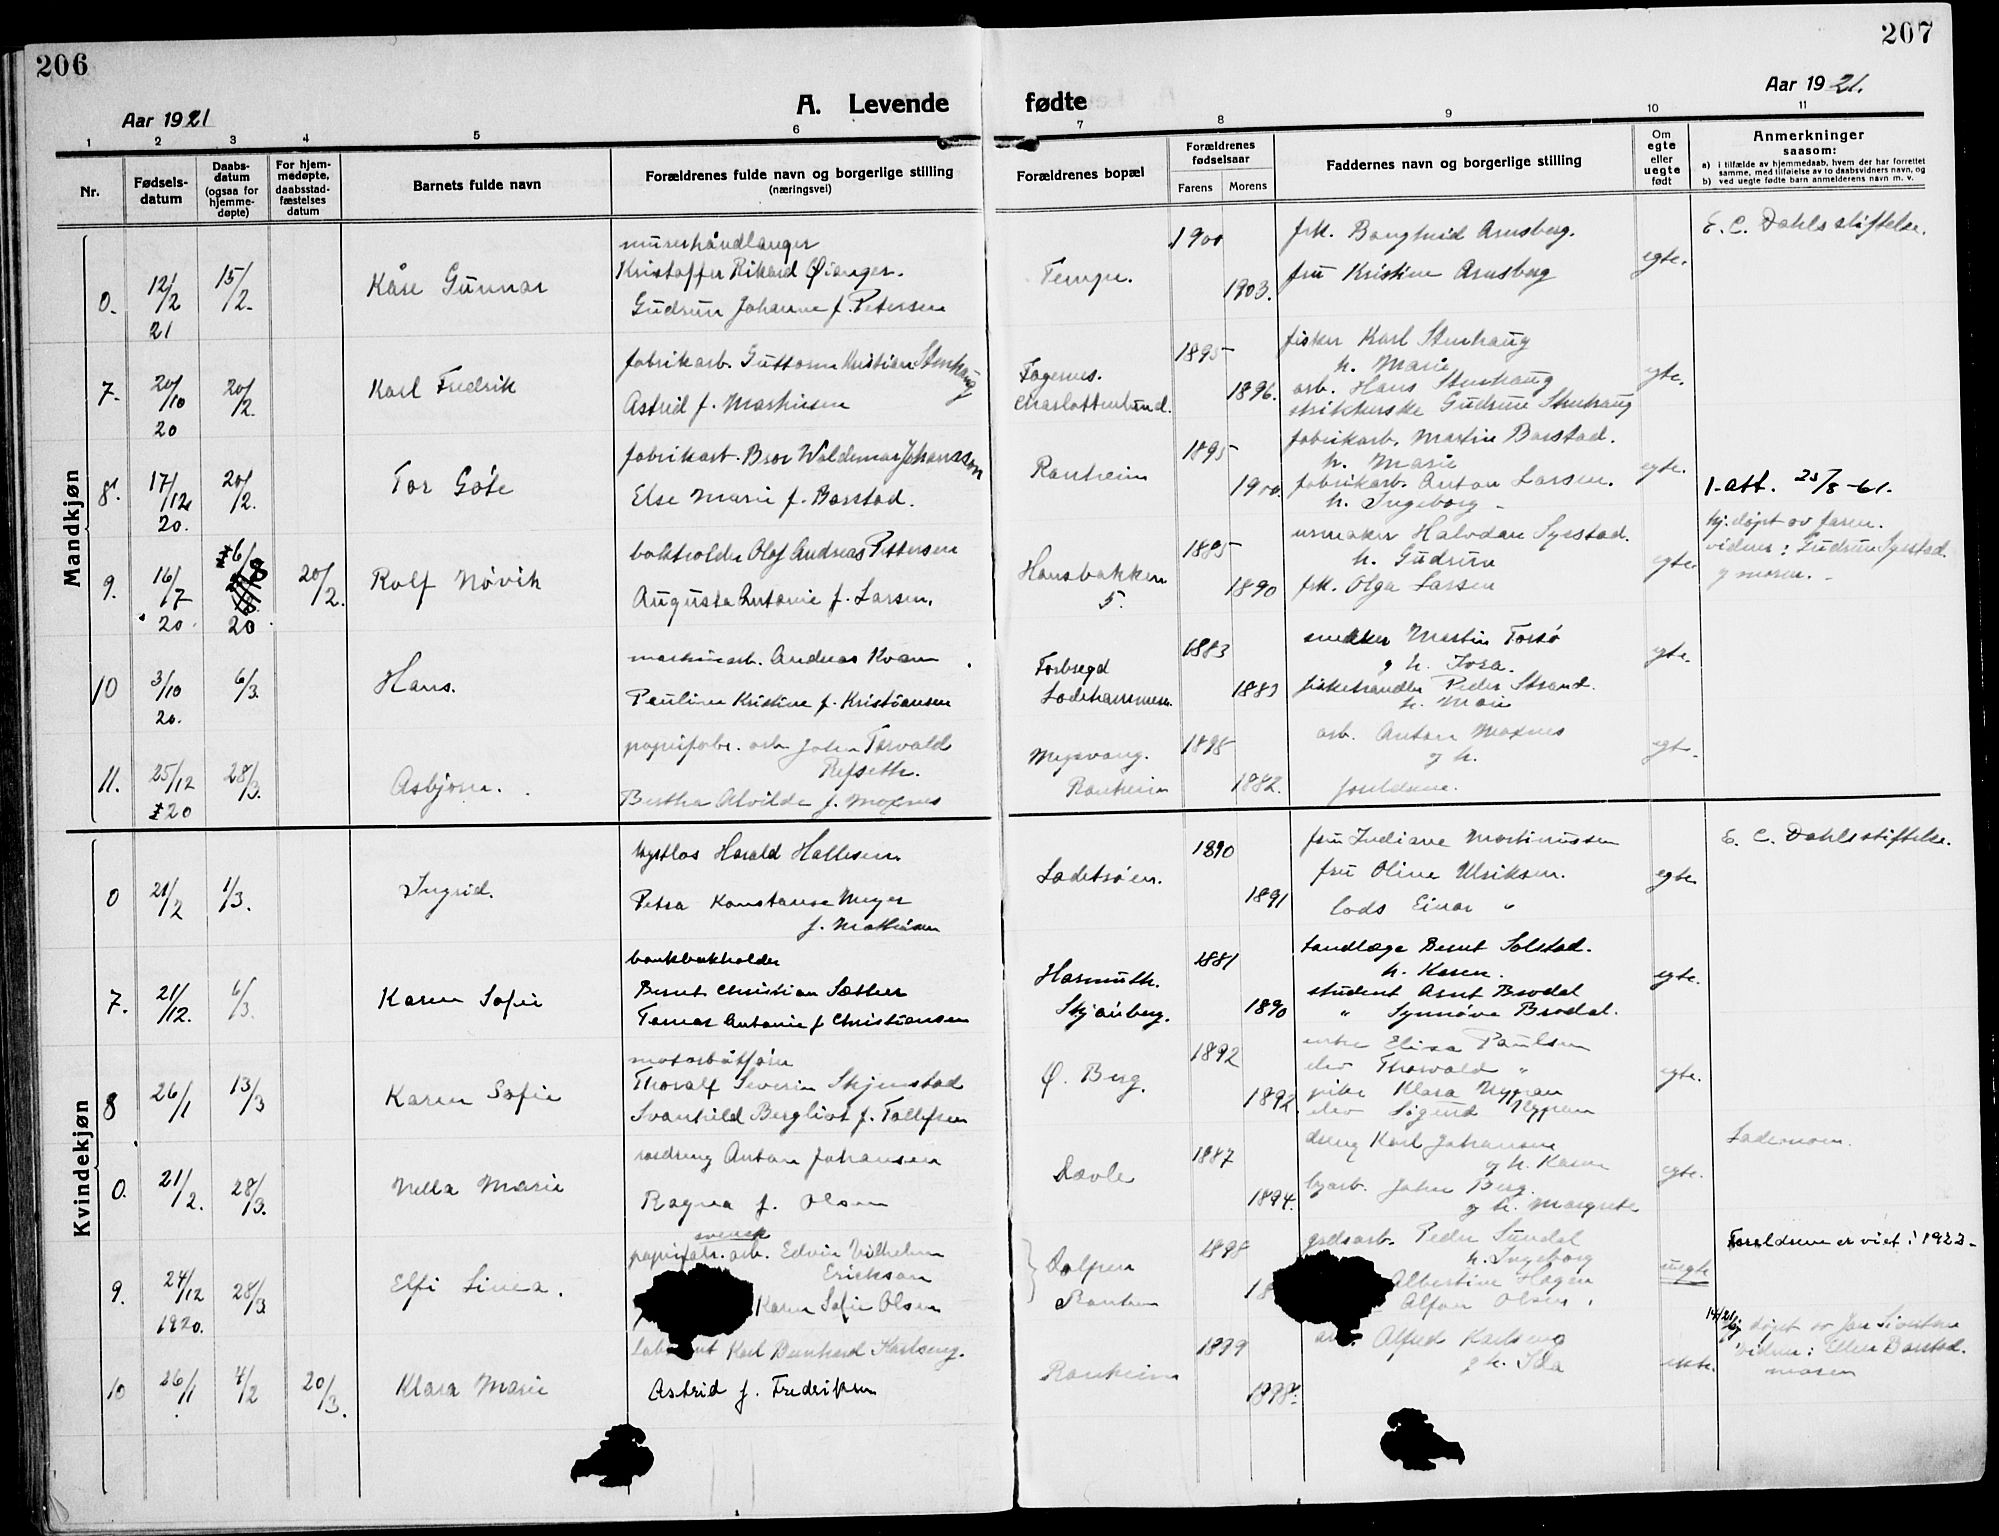 206
207
Aar 1921
A. Levende fødte
Aar 1921.
1 2 3 4 5 6 7 8 9 10 11
Nr.
Fødsels-
datum
Daabs-
datum
(ogsaa for
hjemme-
døpte)
For hjem-
medøpte,
daabsstad-
fæstelses
datum
Barnets fulde navn
Forældrenes fulde navn og borgerlige stilling
(næringsvei)
Forældrenes bopæl
Forældrenes
fødselsaar
Farens Morens
Faddernes navn og borgerlige stilling
Om
egte
eller
uegte
født
Anmerkninger
saasom:
a) i tilfælde av hjemmedaab, hvem der har forrettet
samme, med tilføielse av to daabsvidners navn, og
b) ved uegte fødte barn anmelderens navn m. v.
Mandkjøn
0. 12/2 21 15/2. Kåre Gunnar
murerhåndlanger
Kristoffer Rikard Øianger.
Gudrun Johanne f. Petersen
Tempe. 1900 1903.
frk. Bonghild Arnsberg.
fru Kristine Arnsberg
egte.
E. C. Dahls stiftelse.
7. 20/10 20 20/2. Karl Fredrik
fabrikarb. Guttorm Kristian Stenhaug
Astrid f. Mathisen
Fagernes.
Charlottenlund.
1895 1896.
fisker Karl Stenhaug
h. Marie
arb. Hans Stenhaug
strikkerske Gudrun Stenhaug
egte.
8. 17/12 20. 20/2. Tor Göte
fabrikarb. Bror Waldemar Johansson
Else Marie f. Barstad.
Ranheim 1895 1900.
fabrikarb. Martin Barstad.
h. Marie
fabrikarb. Anton Larsen.
h. Ingeborg
egte.
1. att. 23/8-61.
9. 16/7 20 20 20/2. Rolf Növik
bokholder Olof Andreas Pettersen
Augusta Antonie f. Larsen.
Hansbakken
5.
1885 1890
urmaker Halvdan Sysstad.
h. Gudrun
frk. Olga Larsen
egte.
hj. døpt av faren.
vidner: Gudrun Sysstad
og moren.
10 3/10 20. 6/3. Hans.
maskinarb. Andreas Kvam
Pauline Kristine f. Kristiansen
Forbregd
Ladehammeren.
1883 1883
snekker Martin Torsø
og h.
fiskehandler Peder Strand.
h. Marie
egte.
11. 25/12 20 28/3. Asbjørn.
papirfabr. arb. Johan Torvald
Refseth.
Bertha Alvilde f. Moxnes
Ranheim
1882.
arb. Anton Moxnes
og h.
foreldrene.
egte.
Kvindekjøn
0 21/2 1/3. Ingrid.
Harald Hallesen
Petra Konstanse Meyer
f. Mathisen
Ladetrøen. 1890 1891
fru Indiane Martinussen
fru Oline Ulriksen.
lods Einar "
egte
E. C. Dahls stiftelse.
7. 21/12. 6/3. Karen Sofie
bankbokholder
Bernt Christian Sæther
Tomas Antonie f Christiansen
Harmuth.
1881 1890
tandlæge Bernt Solstad.
h. Karen.
student Arnt Brodal
" Synnøve Brodal.
egte.
8 26/1 13/3 Karen Sofie
motorbåtfører
Thoralf Severin Skjenstad
Svanhild Bergliot f. Tollefsen
Ø. Berg. 1892 1892.
enke Elisa Paulsen
elev Thorvald "
pike Klara Nypan
elev Sigurd Nypan
egte.
0. 21/2. 28/3. Nella Marie
Anton Johansen
Ragna f. Olsen
Davle 1887 1894.
dreng Karl Johansen
og h. Karen
byarb. Johan Berg.
og h. Margrete
egte.
9. 24/12 1920. 28/3 Elfi Linea.
svensk
papirfabr. arb. Edvin Vilhelm
Erickson
Karen Sofie Olsen
Ranheim
1898 18
gadsarb. Peder Sundal
h. Ingeborg
Albertine Hagen
Alfon Olsen.
uegte
Foreldrene er viet i 1922.
10 26/1 4/2 20/3. Klara Marie
Karl Bernhard Karlseng.
Astrid f. Fredriksen
Ranheim 1899 1898.
Alfred Karlseng
og h. Ida
ekte.
hj. døpt av
vidner: Ellen Barstad.
moren